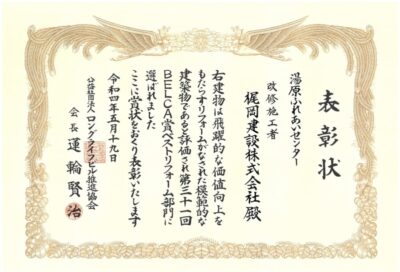 表彰状
湯原ふれあいセンター
改修施工者
梶岡建設株式会社殿
右建物は飛躍的な価値向上を
もたらすリフォームがなされた模範的な
建築物であると評価され第三十一回
BELCA賞ベストリフォーム部門に
選ばれました
ここに賞状をおくり表彰いたします
令和四年五月十九日
公益社団法人ロングライフビル推進協会
会長 蓮輪賢治